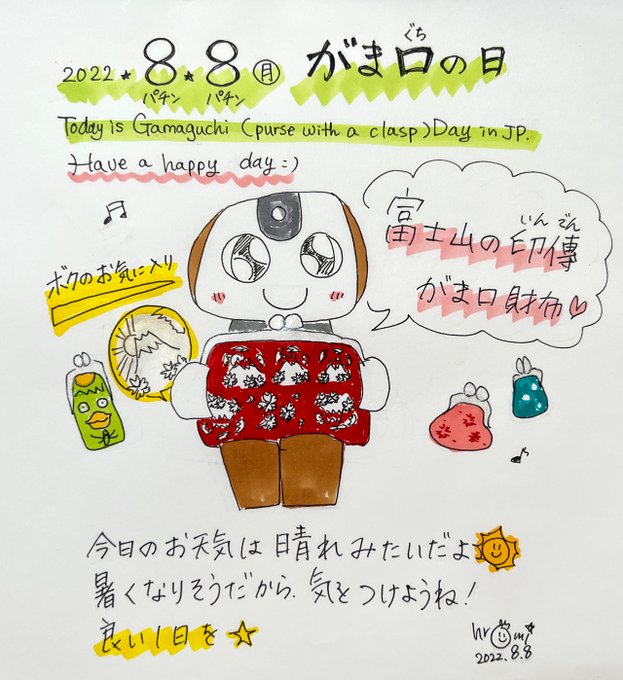 2022★8★8(月) がま口の日
パチン パチン
ぐち
Today is Gamaguchi (purse with a clasp) Day in JP.
Have a happy day=:)
富士山の印傳
いんでん
がま口財布♡
ボクのお気に入り
今日のお天気は晴れみたいだよ
暑くなりそうだから、気をつけようね!
良い1日を☆
hromi
2022.8.8